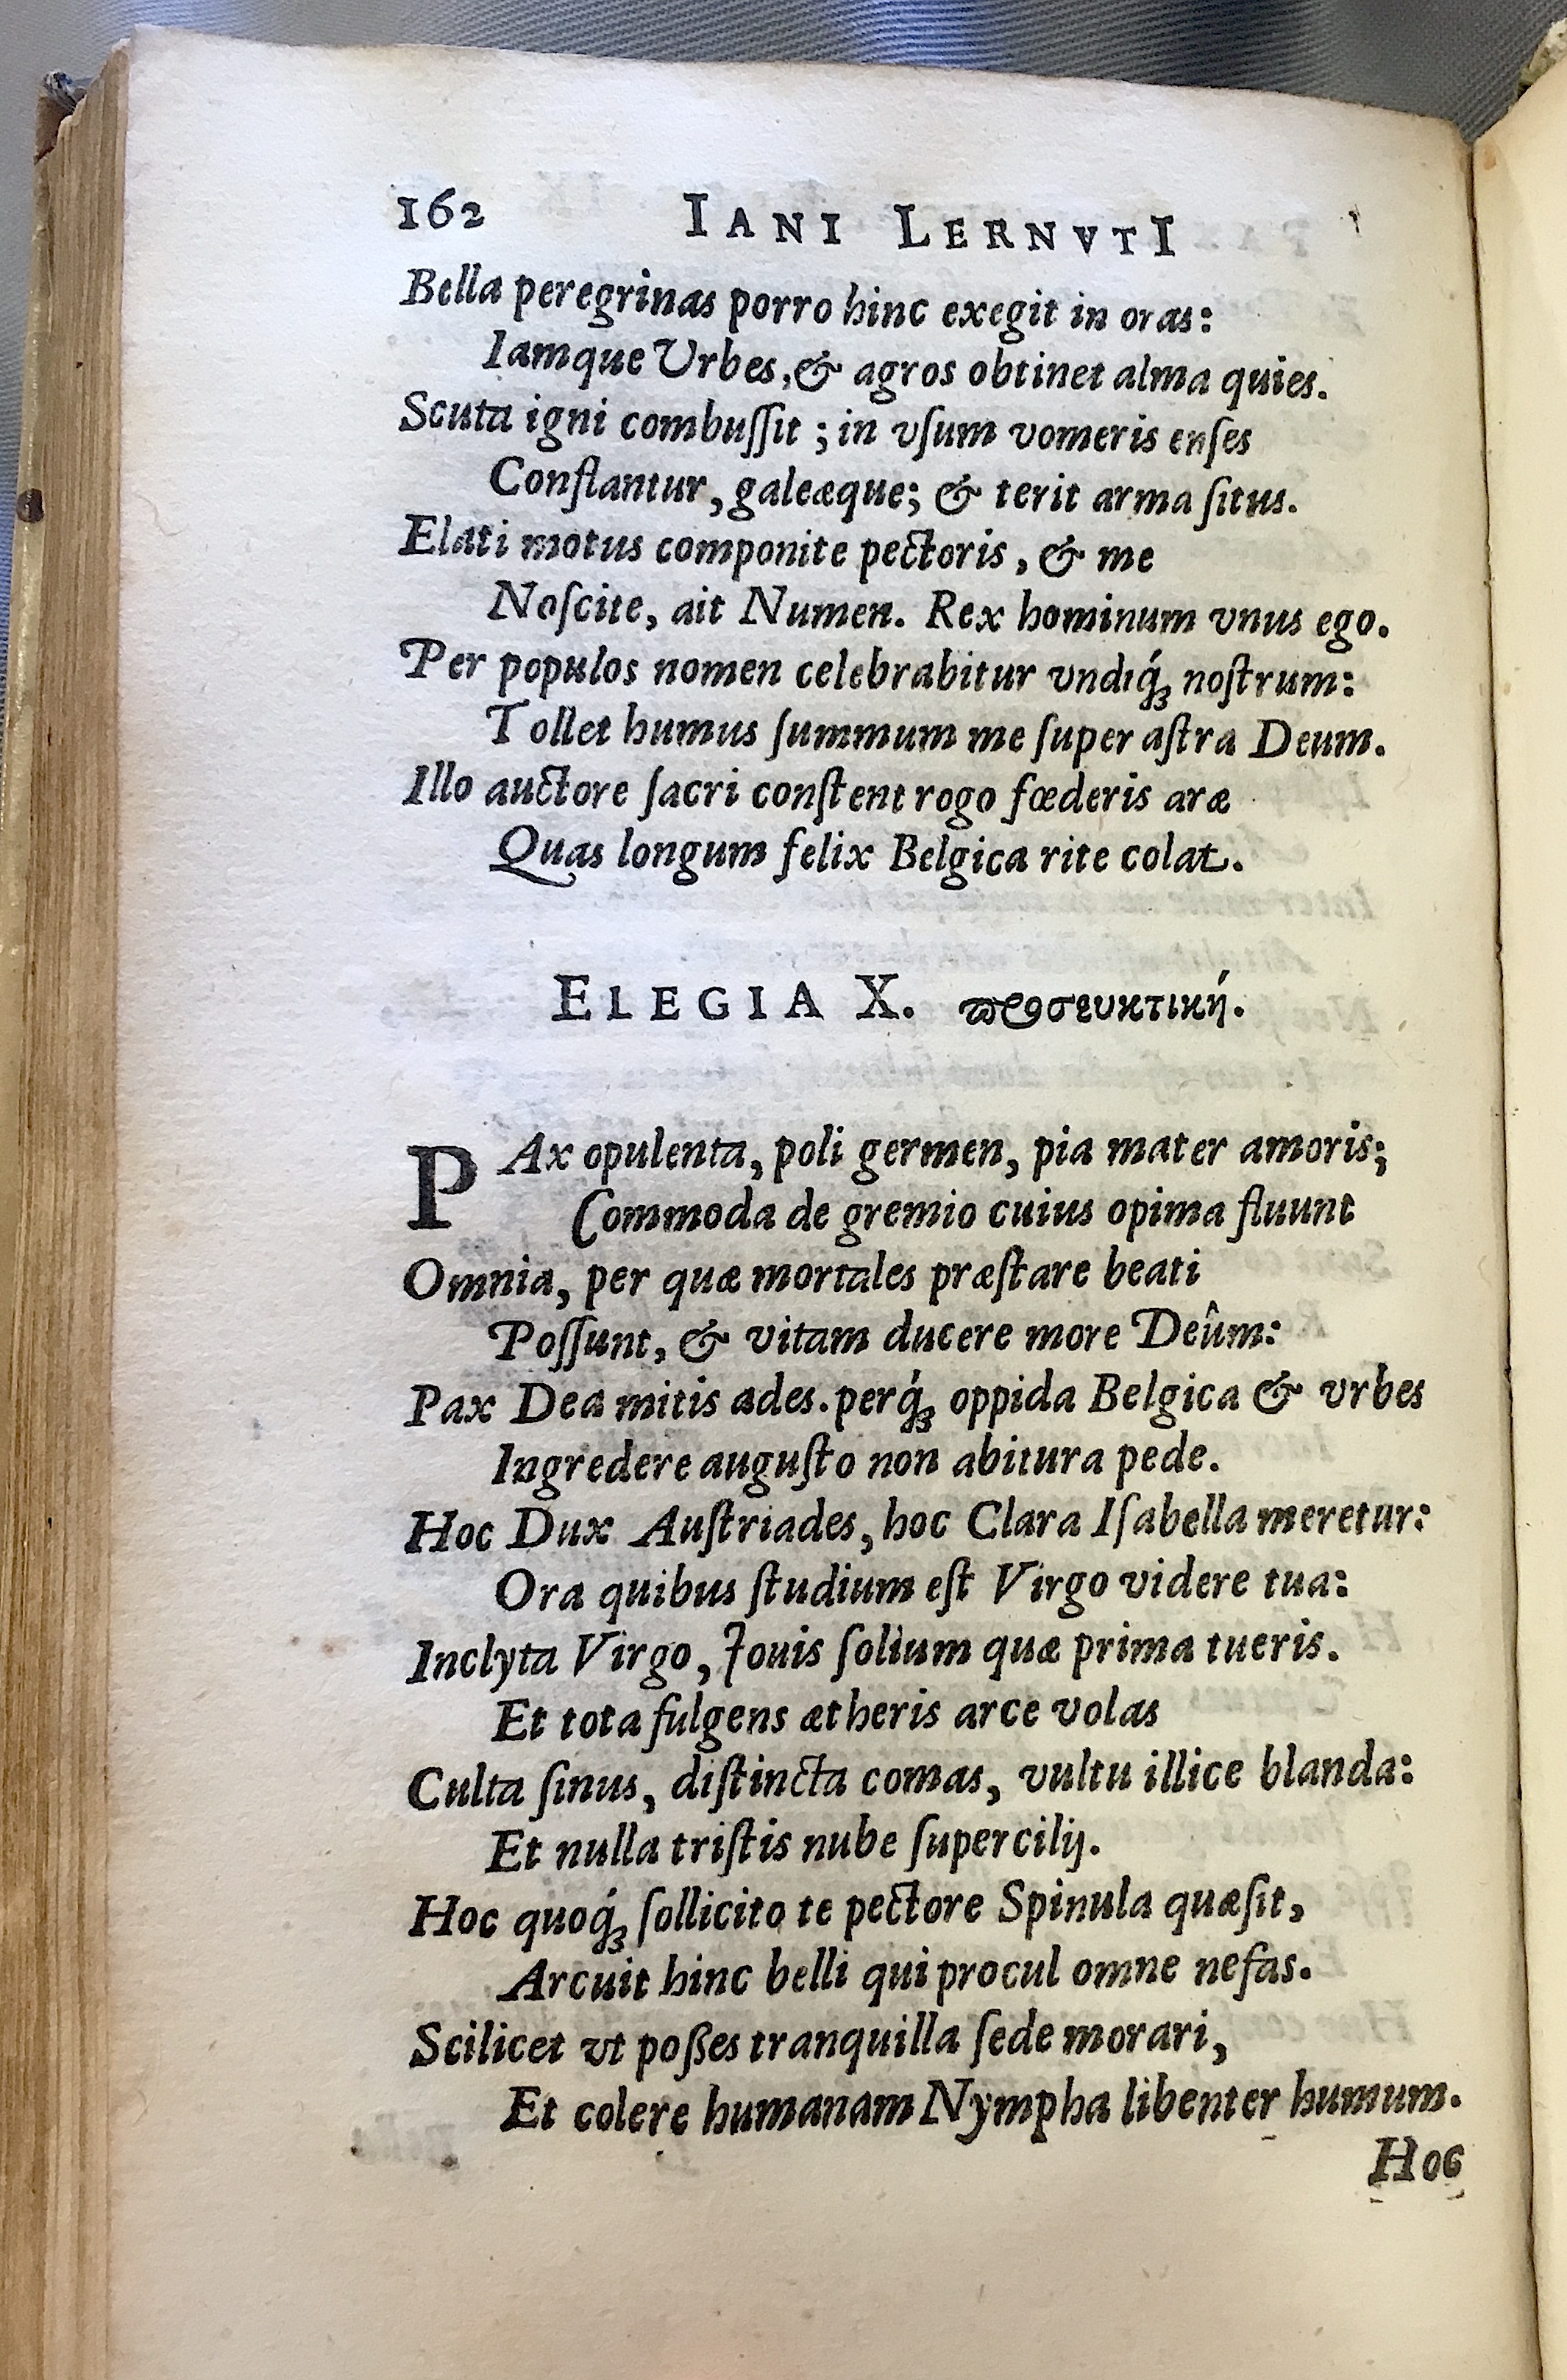 162 IANI LERNVTI
Bella peregrinas porro hinc exegit in oras:
Iamque Urbes, & agros obtinet alma quies.
Scuta igni combuſſit ; in vſum vomeris enſes
Conflantur, galeæque; & terit arma ſitus.
Elati motus componite pectoris, & me
Noſcite, ait Numen. Rex hominum vnus ego.
Per populos nomen celebrabitur vndiq́ꝫ noſtrum:
Tollet humus ſummum me ſuper aſtra Deum.
Illo auctore ſacri conſtent rogo fœderis aræ
Quas longum felix Belgica rite colat.
ELEGIA X. προσευκτική.
PAx opulenta, poli germen, pia mater amoris;
Commoda de gremio cuius opima fluunt
Omnia, per quæ mortales præſtare beati
Poſſunt, & vitam ducere more Deûm:
Pax Dea mitis ades. perq́ꝫ oppida Belgica & vrbes
Ingredere auguſto non abitura pede.
Hoc Dux Auſtriades, hoc Clara Iſabella meretur:
Ora quibus ſtudium eſt Virgo videre tua:
Inclyta Virgo, Jouis ſolium quæ prima tueris.
Et tota fulgens ætheris arce volas
Culta ſinus, diſtincta comas, vultu illice blanda:
Et nulla triſtis nube ſupercilij.
Hoc quoq́ꝫ ſollicito te pectore Spinula quæſit,
Arcuit hinc belli qui procul omne nefas.
Scilicet vt poßes tranquilla ſede morari,
Et colere humanam Nympha libenter humum.
Hoc